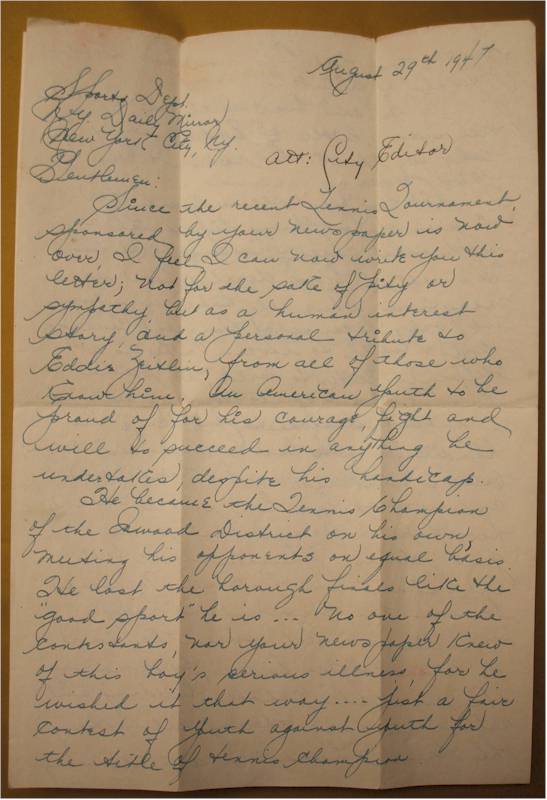 August 29th 1947
Sports Dept.
N.Y. Daily Mirror
New York City, N.Y.
Att: City Editor
Gentlemen:
Since the recent Tennis Tournament,
sponsored by your newspaper is now
over, I feel I can now write you this
letter; not for the sake of pity or
sympathy, but as a human interest
story, and a personal tribute to
Eddie Zeitlin, from all of those who
know him. An American youth to be
proud of for his courage, fight and
will to succeed in anything he
undertakes, despite his handicap.
He became the Tennis Champion
of the Inwood District on his own,
meeting his opponents on equal basis.
He lost the borough finals like the
"good sport" he is ... No one of the
contestants, nor your newspaper knew
of this boy's serious illness, for he
wished it that way .... just a fair
contest of youth against youth for
the title of tennis champion